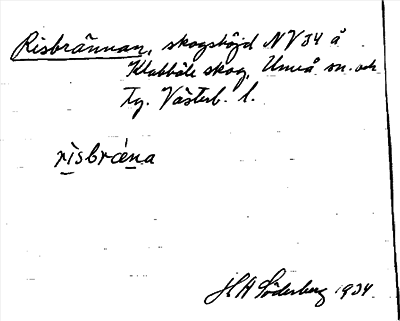 Risbrännan, skogshöjd NV34 å
Klabböle skog, Umeå sn. och
tg. Västerb. l.
rìsbrǽna
H A Söderberg 1934